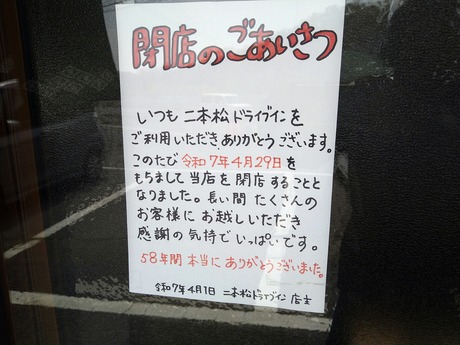 閉店のごあいさつ
いつも 二本松ドライブインを
ご利用いただき ありがとうございます。
このたび 令和7年4月29日を
もちまして 当店を 閉店 することと
なりました。長い間 たくさんの
お客様に お越しいただき
感謝の 気持で いっぱいです。
58年間 本当に ありがとうございました。
令和7年4月1日 二本松ドライブイン 店主